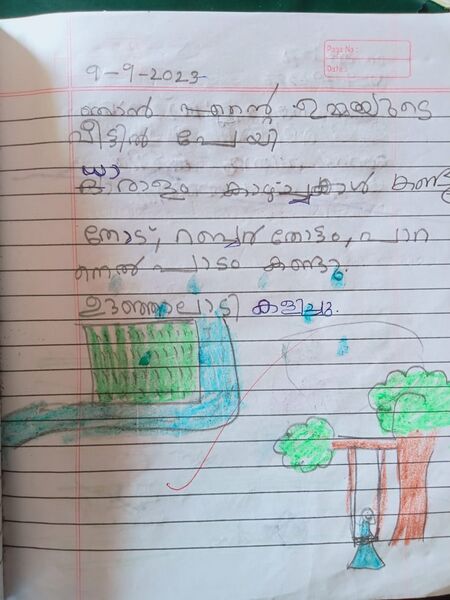 Page No :
Date :
9-9-2023
ഞാൻ എന്റെ ഉമ്മയുടെ
വീട്ടിൽ പേയി
ധാ
രാളം കാഴ്ച്ചകാൾ കണ്ടു
തോട്, റബ്ബർ തോട്ടം, പാറ
നെൽ പാടം കണ്ടു.
ഉഞ്ഞാലാടി കളിച്ചു.